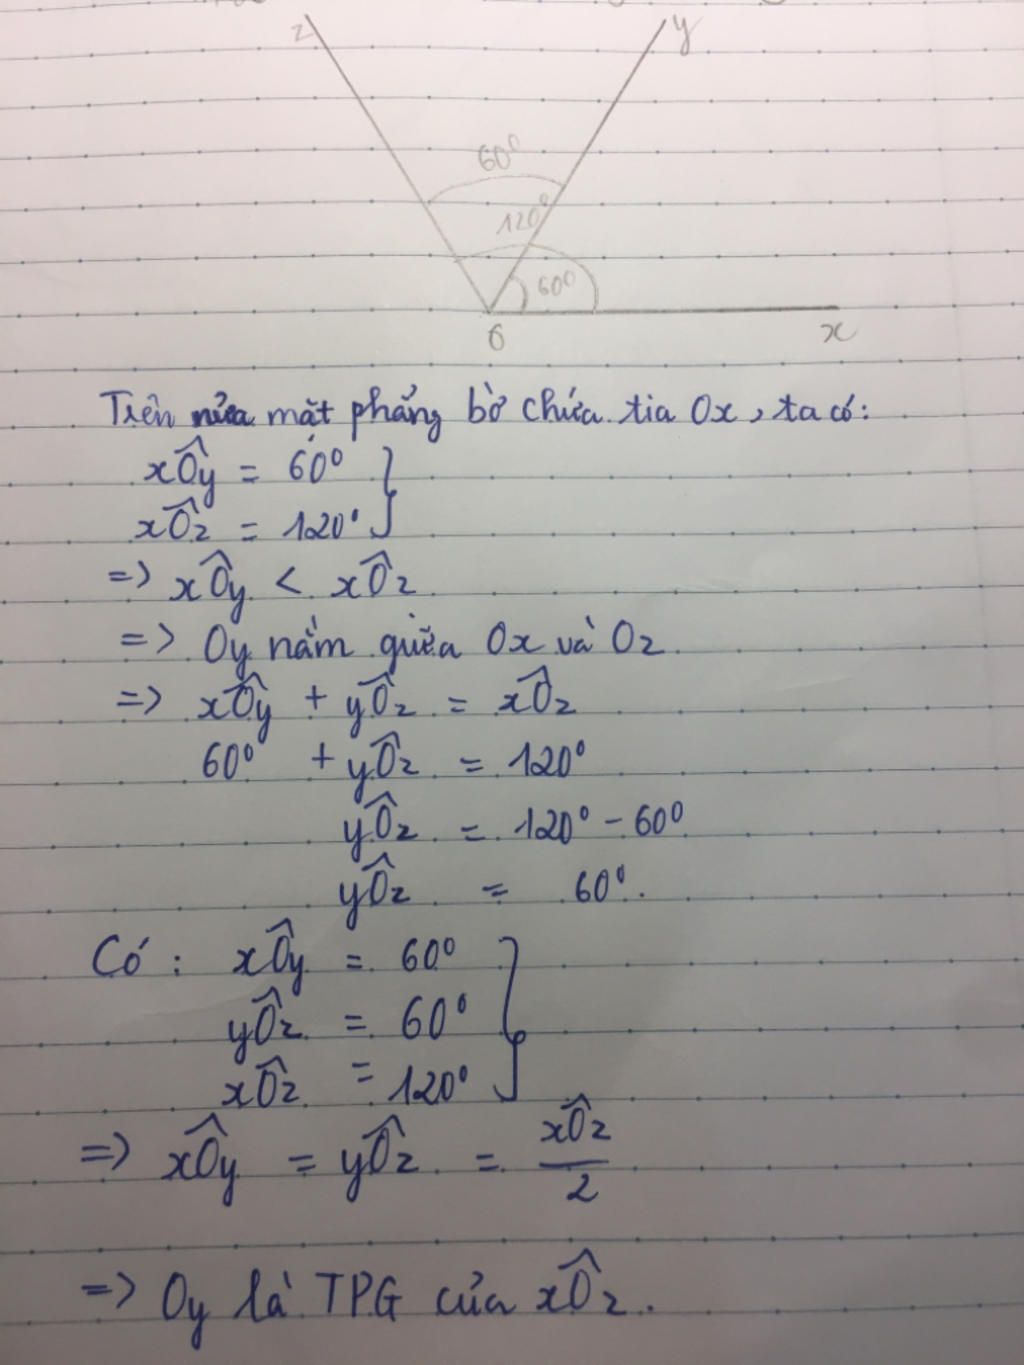 z
y
60⁰
120⁰
60⁰
O
x
Trên nửa mặt phẳng bờ chứa tia Ox, ta có:
xÔy = 60⁰ }
xÔz = 120⁰ }
=> xÔy < xÔz
=> Oy nằm giữa Ox và Oz
=> xÔy + yÔz = xÔz
60⁰ + yÔz = 120⁰
yÔz = 120⁰ - 60⁰
yÔz = 60⁰.
Có: xÔy = 60⁰ }
yÔz = 60⁰ }
xÔz = 120⁰ }
=> xÔy = yÔz = xÔz / 2
=> Oy là TPG của xÔz.